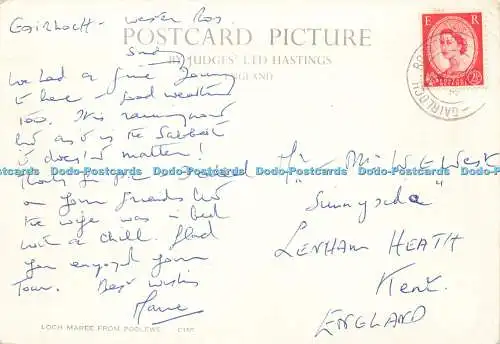 Gairloch - Wester Ross
Sunday
POSTCARD PICTURE
BY JUDGES' LTD HASTINGS
ENGLAND
We had a fine journey
to here & good weather
too. It is raining now
but as it is the Sabbath
it does'nt matter!
Thanks for your card
on your friends but
the wife was in bed
with a chill. Glad
you enjoyed your
Tour. Best wishes
LOCH MAREE FROM POOLEWE
E R
GAIRLOCH
Mr & Mrs W E West
"Sunnyside"
LENHAM HEATH
Kent.
ENGLAND
Dodo-Postcards Dodo-Postcards Dodo-Postcards Dodo-Postcards Dodo-Postcards Dodo-Postcards